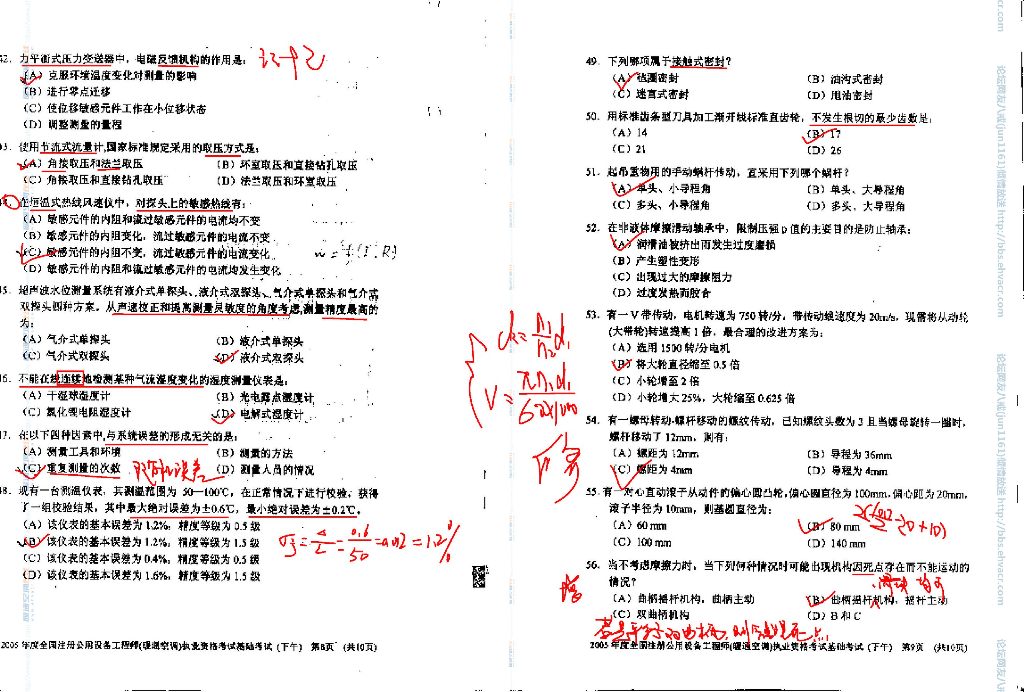 42. 力平衡式压力变送器中，电磁反馈机构的作用是：
(A) 克服环境温度变化对测量的影响
(B) 进行零点迁移
(C) 使位移敏感元件工作在小位移状态
(D) 调整测量的量程
43. 使用节流式流量计,国家标准规定采用的取压方式是：
(A) 角接取压和法兰取压 (B) 环室取压和直接钻孔取压
(C) 角接取压和直接钻孔取压 (D) 法兰取压和环室取压
在恒温式热线风速仪中，对探头上的敏感热线有：
(A) 敏感元件的内阻和流过敏感元件的电流均不变
(B) 敏感元件的内阻变化，流过敏感元件的电流不变
(C) 敏感元件的内阻不变，流过敏感元件的电流变化
(D) 敏感元件的内阻和流过敏感元件的电流均发生变化
45. 超声波水位测量系统有液介式单探头、液介式双探头、气介式单探头和气介式
双探头四种方案。从声速校正和提高测量灵敏度的角度考虑,测量精度最高的
为：
(A) 气介式单探头 (B) 液介式单探头
(C) 气介式双探头 (D) 液介式双探头
46. 不能在线连续地检测某种气流湿度变化的湿度测量仪表是：
(A) 干湿球湿度计 (B) 光电露点湿度计
(C) 氯化锂电阻湿度计 (D) 电解式湿度计
47. 在以下四种因素中,与系统误差的形成无关的是：
(A) 测量工具和环境 (B) 测量的方法
(C) 重复测量的次数 (D) 测量人员的情况
48. 现有一台测温仪表，其测温范围为 50—100℃，在正常情况下进行校验，获得
了一组校验结果，其中最大绝对误差为±0.6℃，最小绝对误差为±0.2℃，
(A) 该仪表的基本误差为 1.2%；精度等级为 0.5 级
(B) 该仪表的基本误差为 1.2%；精度等级为 1.5 级
(C) 该仪表的基本误差为 0.4%；精度等级为 0.5 级
(D) 该仪表的基本误差为 1.6%；精度等级为 1.5 级
2005 年度全国注册公用设备工程师(暖通空调)执业资格考试基础考试（下午） 第8页 （共10页）
49. 下列哪项属于接触式密封？
(A) 毡圈密封 (B) 油沟式密封
(C) 迷宫式密封 (D) 甩油密封
50. 用标准齿条型刀具加工渐开线标准直齿轮，不发生根切的最少齿数是：
(A) 14 (B) 17
(C) 21 (D) 26
51. 起吊重物用的手动蜗杆传动，宜采用下列哪个蜗杆？
(A) 单头、小导程角 (B) 单头、大导程角
(C) 多头、小导程角 (D) 多头、大导程角
52. 在非液体摩擦滑动轴承中，限制压强 p 值的主要目的是防止轴承：
(A) 润滑油被挤出而发生过度磨损
(B) 产生塑性变形
(C) 出现过大的摩擦阻力
(D) 过度发热而胶合
53. 有一 V 带传动，电机转速为 750 转/分，带传动线速度为 20m/s，现需将从动轮
(大带轮)转速提高 1 倍，最合理的改进方案为：
(A) 选用 1500 转/分电机
(B) 将大轮直径缩至 0.5 倍
(C) 小轮增至 2 倍
(D) 小轮增大 25%，大轮缩至 0.625 倍
54. 有一螺母转动-螺杆移动的螺纹传动，已知螺纹头数为 3 且当螺母旋转一圈时，
螺杆移动了 12mm，则有：
(A) 螺距为 12mm (B) 导程为 36mm
(C) 螺距为 4mm (D) 导程为 4mm
55. 有一对心直动滚子从动件的偏心圆凸轮,偏心圆直径为 100mm,偏心距为 20mm,
滚子半径为 10mm，则基圆直径为：
(A) 60 mm (B) 80 mm
(C) 100 mm (D) 140 mm
56. 当不考虑摩擦力时，当下列何种情况时可能出现机构因死点存在而不能运动的
情况？
(A) 曲柄摇杆机构，曲柄主动 (B) 曲柄摇杆机构，摇杆主动
(C) 双曲柄机构 (D) B 和 C
2005 年度全国注册公用设备工程师(暖通空调)执业资格考试基础考试（下午） 第9页 （共10页）
论坛网友八戒(jun1161)倾情放送 http://bbs.ehvacr.com
论坛网友八戒(jun1161)倾情放送 http://bbs.ehvacr.com